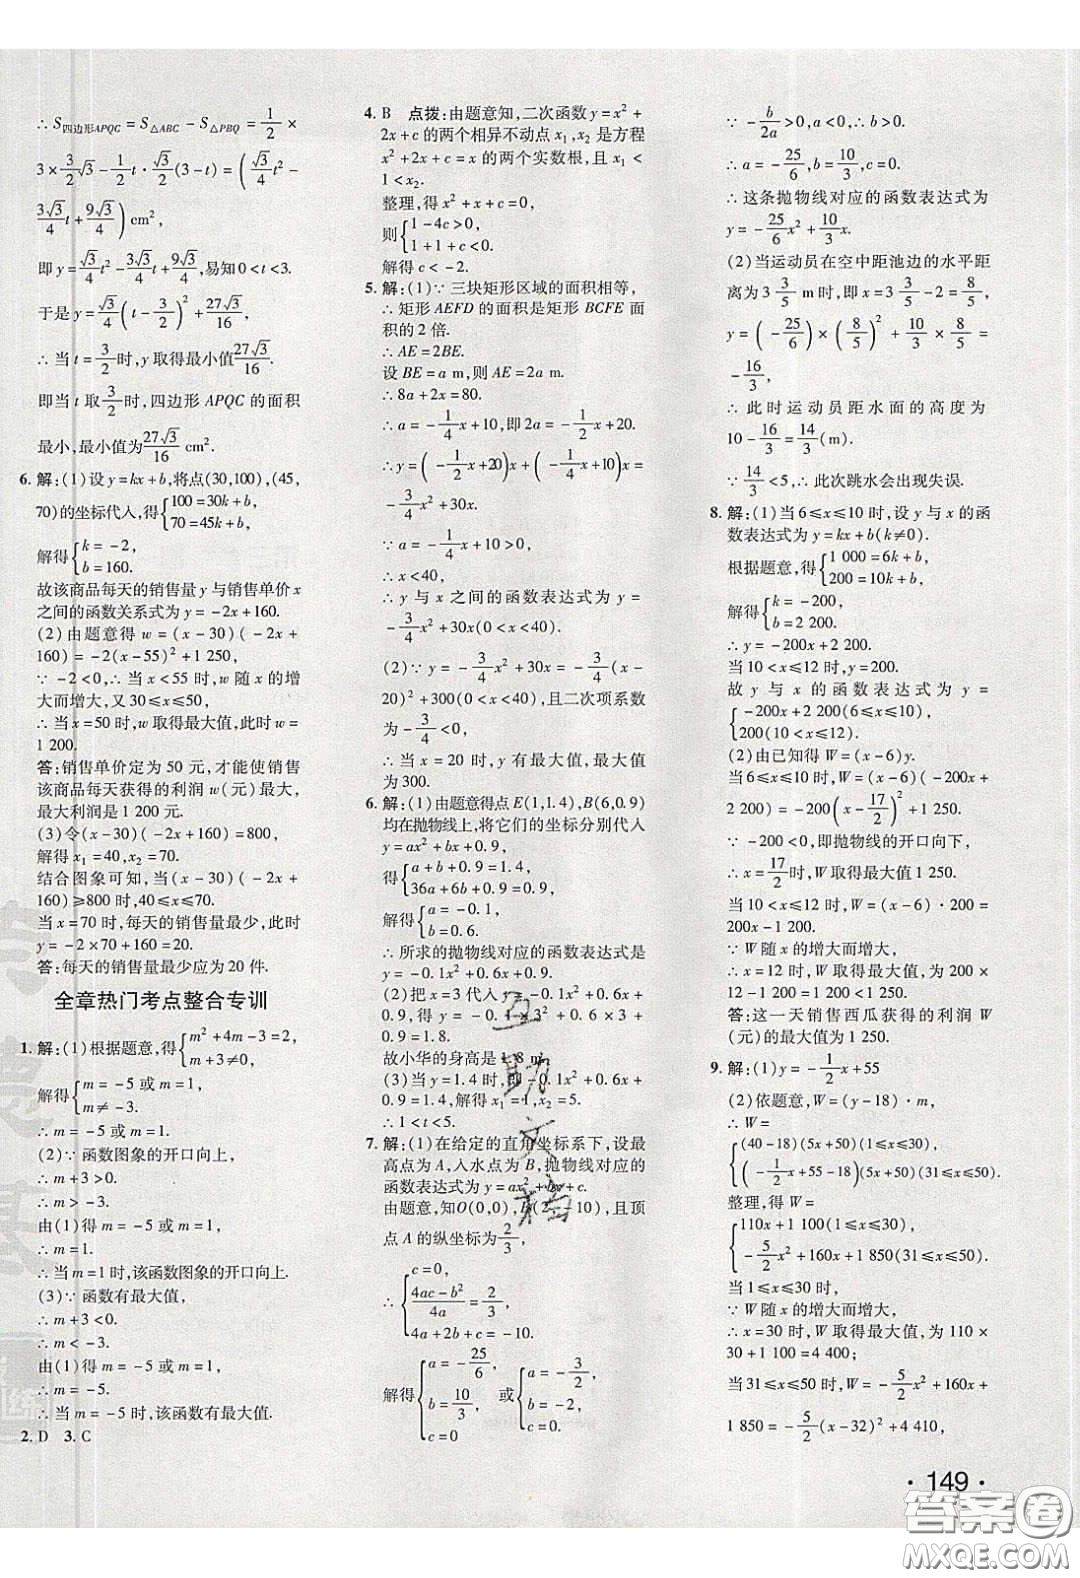 ∴ S四边形APQC = S△ABC − S△PBQ = 1/2 ×
3 × 3/2√3 − 1/2 t · √3/2(3 − t) = (√3/4 t² −
3√3/4 t + 9√3/4) cm²,
即 y = √3/4 t² − 3√3/4 t + 9√3/4, 易知 0 < t < 3.
于是 y = √3/4 (t − 3/2)² + 27√3/16.
∴ 当 t = 3/2 时, y 取得最小值 27√3/16.
即当 t 取 3/2 时, 四边形 APQC 的面积
最小, 最小值为 27√3/16 cm².
6. 解: (1) 设 y = kx + b, 将点(30,100), (45,
70)的坐标代入, 得 {100 = 30k + b, 70 = 45k + b,
解得 {k = −2, b = 160.
故该商品每天的销售量 y 与销售单价 x
之间的函数关系式为 y = −2x + 160.
(2) 由题意得 w = (x − 30)(−2x +
160) = −2(x − 55)² + 1 250,
∵ −2 < 0, ∴ 当 x < 55 时, w 随 x 的增
大而增大, 又 30 ≤ x ≤ 50,
∴ 当 x = 50 时, w 取得最大值, 此时 w =
1 200.
答: 销售单价定为 50 元, 才能使销售
该商品每天获得的利润 w(元)最大,
最大利润是 1 200 元.
(3) 令(x − 30)(−2x + 160) = 800,
解得 x₁ = 40, x₂ = 70.
结合图象可知, 当(x − 30)(−2x +
160) ≥ 800 时, 40 ≤ x ≤ 70.
当 x = 70 时, 每天的销售量最少, 此时
y = −2 × 70 + 160 = 20.
答: 每天的销售量最少应为 20 件.
全章热门考点整合专训
1. 解: (1) 根据题意, 得 {m² + 4m − 3 = 2, m + 3 ≠ 0,
解得 {m = −5 或 m = 1, m ≠ −3.
∴ m = −5 或 m = 1.
(2) ∵ 函数图象的开口向上,
∴ m + 3 > 0.
∴ m > −3.
由(1)得 m = −5 或 m = 1,
∴ m = 1.
∴ 当 m = 1 时, 该函数图象的开口向上.
(3) ∵ 函数有最大值,
∴ m + 3 < 0.
∴ m < −3.
由(1)得 m = −5 或 m = 1,
∴ m = −5.
∴ 当 m = −5 时, 该函数有最大值.
2. D 3. C
4. B 点拨: 由题意知, 二次函数 y = x² +
2x + c 的两个相异不动点 x₁, x₂ 是方程
x² + 2x + c = x 的两个实数根, 且 x₁ <
1 < x₂.
整理, 得 x² + x + c = 0,
则 {1 − 4c > 0, 1 + 1 + c < 0,
解得 c < −2.
5. 解: (1) ∵ 三块矩形区域的面积相等,
∴ 矩形 AEFD 的面积是矩形 BCFE 面
积的 2 倍.
∴ AE = 2BE.
设 BE = a m, 则 AE = 2a m.
∴ 8a + 2x = 80.
∴ a = −1/4 x + 10, 即 2a = −1/2 x + 20.
∴ y = (−1/2 x + 20)x + (−1/4 x + 10)x =
−3/4 x² + 30x.
∵ a = −1/4 x + 10 > 0,
∴ x < 40,
∴ y 与 x 之间的函数表达式为 y =
−3/4 x² + 30x(0 < x < 40).
(2) ∵ y = −3/4 x² + 30x = −3/4 (x −
20)² + 300(0 < x < 40), 且二次项系数
为 −3/4 < 0,
∴ 当 x = 20 时, y 有最大值, 最大值
为 300.
6. 解: (1) 由题意得点 E(1, 1.4), B(6, 0.9)
均在抛物线上, 将它们的坐标分别代入
y = ax² + bx + 0.9,
得 {a + b + 0.9 = 1.4, 36a + 6b + 0.9 = 0.9,
解得 {a = −0.1, b = 0.6.
∴ 所求的抛物线对应的函数表达式是
y = −0.1x² + 0.6x + 0.9.
(2) 把 x = 3 代入 y = −0.1x² + 0.6x +
0.9, 得 y = −0.1 × 3² + 0.6 × 3 +
0.9 = 1.8.
故小华的身高是 1.8 m.
(3) 当 y = 1.4 时, −0.1x² + 0.6x +
0.9 = 1.4, 解得 x₁ = 1, x₂ = 5.
∴ 1 < t < 5.
7. 解: (1) 在给定的直角坐标系下, 设最
高点为 A, 入水点为 B, 抛物线对应的
函数表达式为 y = ax² + bx + c.
由题意, 知 O(0,0), B(2, −10), 且顶
点 A 的纵坐标为 2/3,
∴ {c = 0, (4ac − b²)/4a = 2/3, 4a + 2b + c = −10.
解得 {a = −25/6, b = 10/3, c = 0 或 {a = −3/2, b = −2, c = 0.
∵ −b/2a > 0, a < 0, ∴ b > 0.
∴ a = −25/6, b = 10/3, c = 0.
∴ 这条抛物线对应的函数表达式为
y = −25/6 x² + 10/3 x.
(2) 当运动员在空中距池边的水平距
离为 3 3/5 m 时, 即 x = 3 3/5 − 2 = 8/5 时,
y = (−25/6) × (8/5)² + 10/3 × 8/5 =
−16/3,
∴ 此时运动员距水面的高度为
10 − 16/3 = 14/3 (m).
∵ 14/3 < 5, ∴ 此次跳水会出现失误.
8. 解: (1) 当 6 ≤ x ≤ 10 时, 设 y 与 x 的函
数表达式为 y = kx + b(k ≠ 0).
根据题意, 得 {1 000 = 6k + b, 200 = 10k + b,
解得 {k = −200, b = 2 200.
∴ y = −200x + 2 200.
当 10 < x ≤ 12 时, y = 200.
故 y 与 x 的函数表达式为 y =
{−200x + 2 200(6 ≤ x ≤ 10), 200(10 < x ≤ 12).
(2) 由已知得 W = (x − 6)y.
当 6 ≤ x ≤ 10 时, W = (x − 6)(−200x +
2 200) = −200(x − 17/2)² + 1 250.
∵ −200 < 0, 即抛物线的开口向下,
∴ x = 17/2 时, W 取得最大值 1 250.
当 10 < x ≤ 12 时, W = (x − 6) · 200 =
200x − 1 200.
∵ W 随 x 的增大而增大,
∴ x = 12 时, W 取得最大值, 为 200 ×
12 − 1 200 = 1 200 < 1 250.
答: 这一天销售西瓜获得的利润 W
(元)的最大值为 1 250.
9. 解: (1) y = −1/2 x + 55
(2) 依题意, W = (y − 18) · m,
∴ W =
{(40 − 18)(5x + 50)(1 ≤ x ≤ 30), (−1/2 x + 55 − 18)(5x + 50)(31 ≤ x ≤ 50).
整理, 得 W =
{110x + 1 100(1 ≤ x ≤ 30), −5/2 x² + 160x + 1 850(31 ≤ x ≤ 50).
当 1 ≤ x ≤ 30 时,
∵ W 随 x 的增大而增大,
∴ x = 30 时, W 取得最大值, 为 110 ×
30 + 1 100 = 4 400;
当 31 ≤ x ≤ 50 时, W = −5/2 x² + 160x +
1 850 = −5/2 (x − 32)² + 4 410,
· 149 ·
答案圈
MXQE.COM